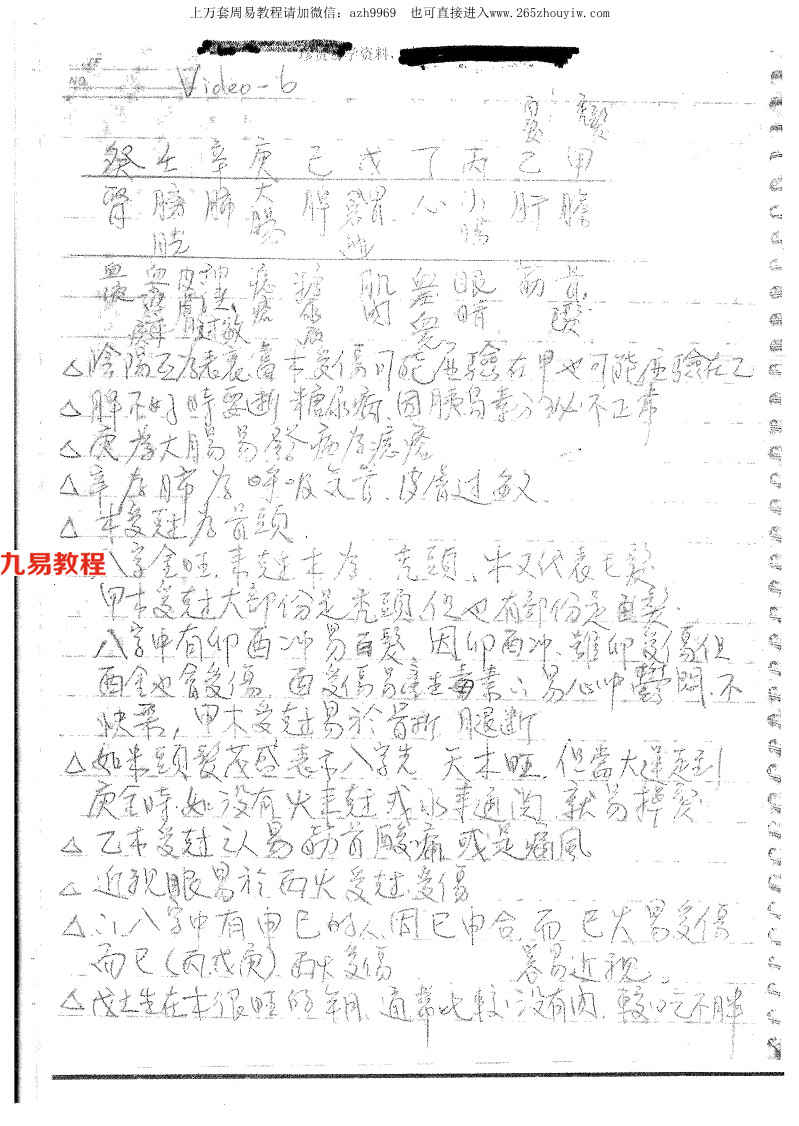 上万套周易教程请加微信：azh9969 也可直接进入www.265zhouyiw.com
学资料,
NO.
Video-6
髮 鬚
癸 壬 辛 庚 己 戊 丁 丙 乙 甲
腎 膀胱 肺 大腸 脾 胃 心 小腸 肝 膽
血液 皮膚 過敏 痣瘡 糖尿病 肌肉 眼睛 筋 骨 髮
△陰陽互為表裏當木受傷可能应驗在甲也可能应驗在乙
△脾不好時要斷糖尿病,因胰島素分泌不正常
△庚為大腸易發病為痣瘡
△辛為肺為呼吸氣管、皮膚過敏
△木受尅為骨頭.
九易教程
八字金旺.來尅木為.禿頭、木又代表毛髮
甲木受尅大部份是禿頭.但也有部份是白髮.
八字中有卯酉冲易白髮.因卯酉冲.雖卯受傷但
酉金也會受傷.酉受傷易產生毒素∴易心中鬱悶.不
快樂,甲木受尅易於骨折.腿斷
△如果頭髮茂盛表示八字先天木旺.但當大運走到
庚金時.如没有火來尅或水來通関.就易掉髮
△乙木受尅之人易筋骨酸痛或是痛風
△近視眼易於丙火受尅.受傷
△∴八字中有申巳的人.因巳申合.而巳火易受傷
而巳(丙.戊.庚).丙火受傷 容易近視.
△戊土生在木很旺的年月.通常比較没有肉.較吃不胖